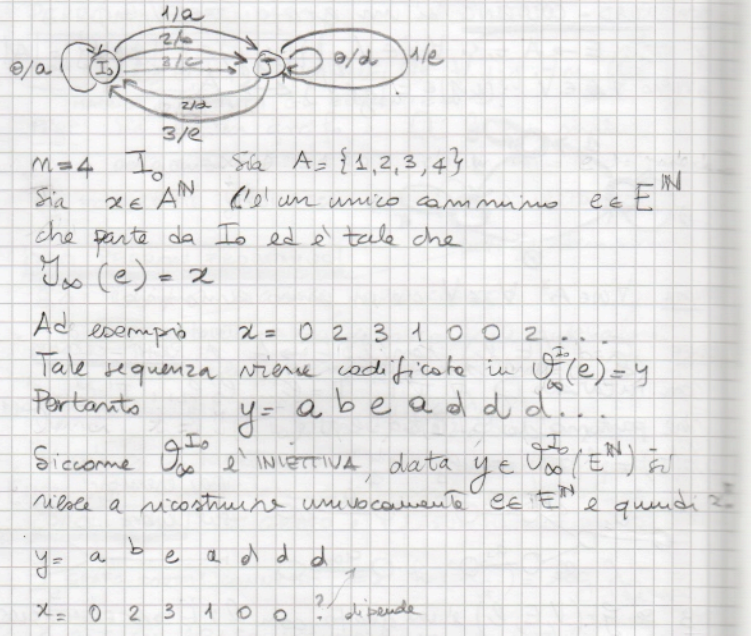 1/a
2/b
0/a I₀ 3/c J 0/d 1/e
2/d
3/e
n=4 I₀ Sia A={1,2,3,4}
Sia x∈A^ℕ C'è un unico cammino e∈E^ℕ
che parte da I₀ ed è tale che
(e) = x
Ad esempio x= 0 2 3 1 0 0 2 ...
Tale sequenza viene codificata in (e)=y
Pertanto y= a b e a d d d...
Siccome è INIETTIVA, data y∈ (E^ℕ) si
riesce a ricostruire univocamente e∈E^ℕ e quindi x
y= a b e a d d d
x= 0 2 3 1 0 0 ? dipende